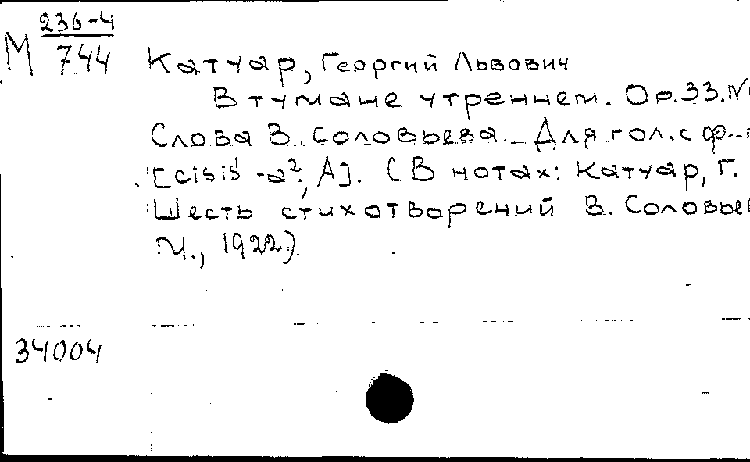 236-4
М 744
Катуар, Георгий Львович
В тумане утреннем. Ор.33.№
Слова В. Соловьева. Для гол. с ф.-
[cis¹ - a², А]. (В нотах: Катуар, Г.
Шесть стихотворений В. Соловье
М., 1922)
34004